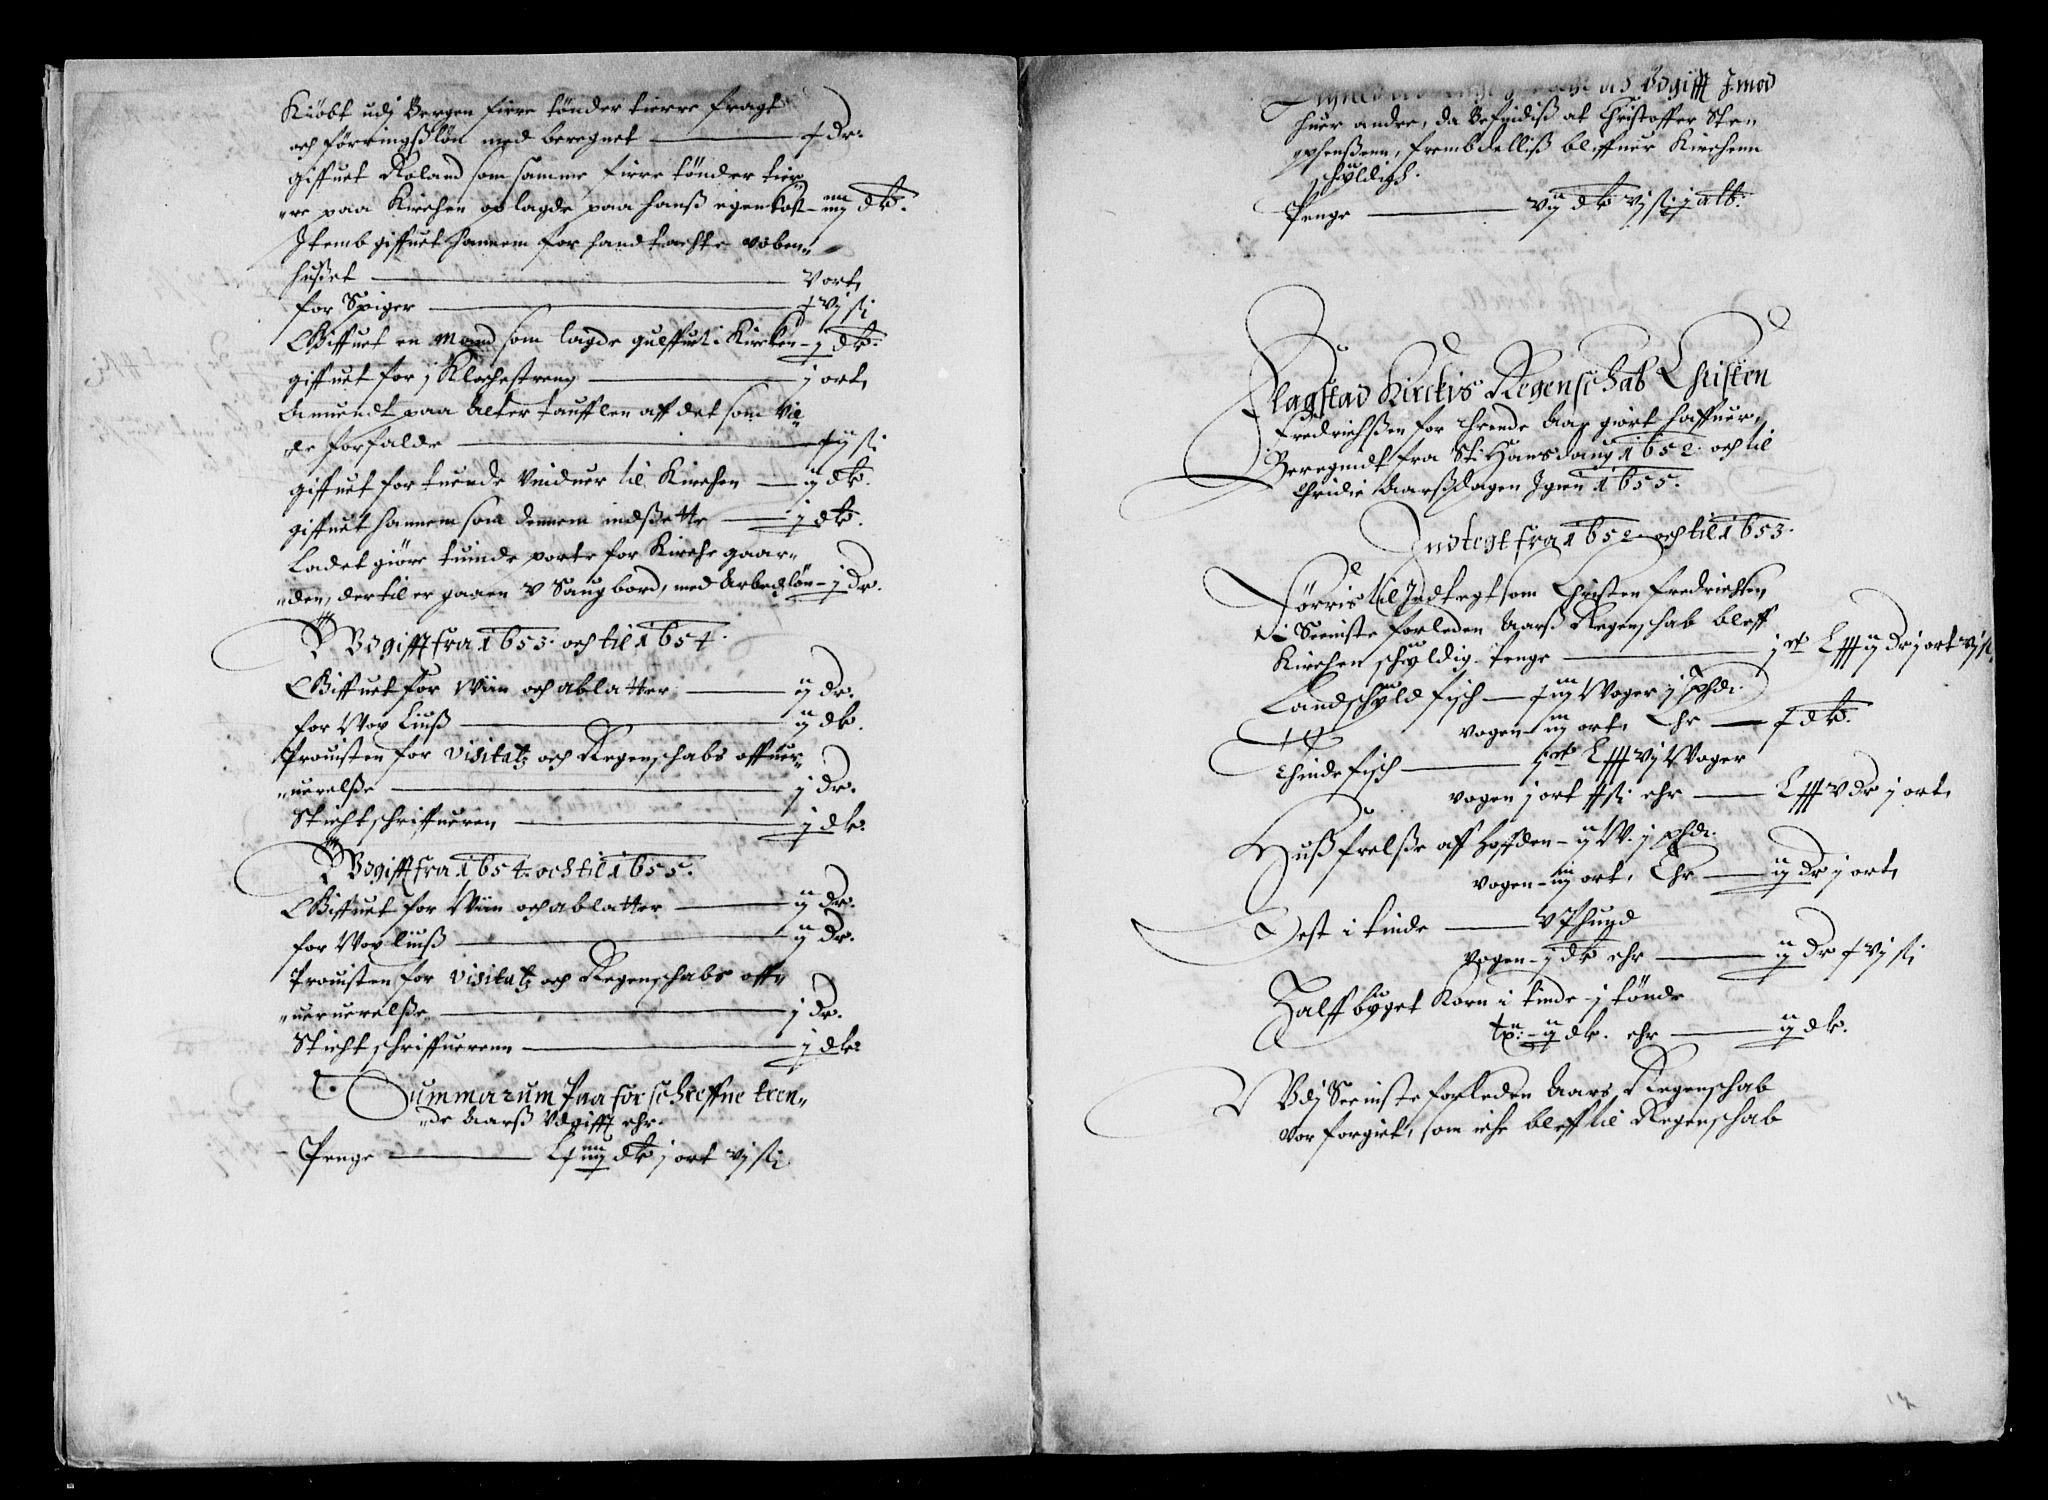 Kiöbt udj Bergen fierre tönder tierre fragt
och förringsßlön med beregnet — x dr.
Giffuet Roland som samme fierre tönder tier„
„re paa Kirchen oplagde paa hanß egen kost — iiij dlr.
Itemb giffuet hannem for hand tachte vaben„
hußet — v ort,
for Spiger — xvj ß
Giffuet en Mand som lagde gulffuet i Kircken — j dlr.
giffuet for j Klochestreng — j ort,
Anuendt paa Alter taufflen aff det som vil„
„de forfalde — xij ß
giffuet for tuende vinduer til Kirchen — ij dlr.
giffuet hannem som dennem indßette — j dlr.
Ladet giöre tuinde porte for Kirche gaar„
„den, der til er gaaen v Saug bord, med Arbedzlön — j dr.
Vdgifft fra 1653. och til 1654.
Giffuet for Wiin och ablatter — ij dr.
for Wox liuß — ij dlr.
Prouisten for visitatz och Regenschabs offuer„
„uerelße — j dr.
Sticht schriffueren — j dlr.
Vdgifft fra 1654. och til 1655.
Giffuet for Wiin och ablatter — ij dr.
for Wox liuß — ij dr.
Prouisten for visitatz och Regenschabs off„
„ueruerelße — j dr.
Sticht schriffuerenn — j dlr.
Summarum Paa forschreffne tren„
„de Aarß Vdgifft ehr.
Penge — Lxiiij dlr j ort vj ß
Vdgifft Imod
huer andre, da Befindiß at Christoffer Ste„
„phenßenn, frembdelliß bleffuer Kirchenn
schyldigh.
Penge — vij dlr vj ß j alb:
Flagstad Kirckis Regenschab Christen
Fredrichßen for thrende Aar giört haffuer,
Beregnidt fra St: Hans daug 1652. och til
thridie Aarßdagen Igien 1655.
Indtegt fra 1652 och til 1653.
Förris til Indtegt som Christen Fredrichßen
vi Seeniste forleden Aarß Regenschab bleff
Kirchen schyldig. Penge — jc Lxxxij dr j ort vj ß.
Landschyld fisch — xiiij Woger j phd:
vogen — iij ort, Ehr — x dlr.
thinde fisch — jc Lxxxvj Woger
vogen j ort x ß ehr — Lxxxv dr j ort,
Hußfrelße aff hoffden — ij W. j phd:
vogen — iij ort, Ehr — ij dr j ort,
Ost i tinde — v Phund
vogen — j dlr ehr — ij dr xvj ß
Halff byget Korn i tinde — j tönde
tø: — ij dlr. ehr — ij dlr.
Vdj Seeniste forleden Aars Regenschab
vor forgiet, som iche bleff til Regenschab